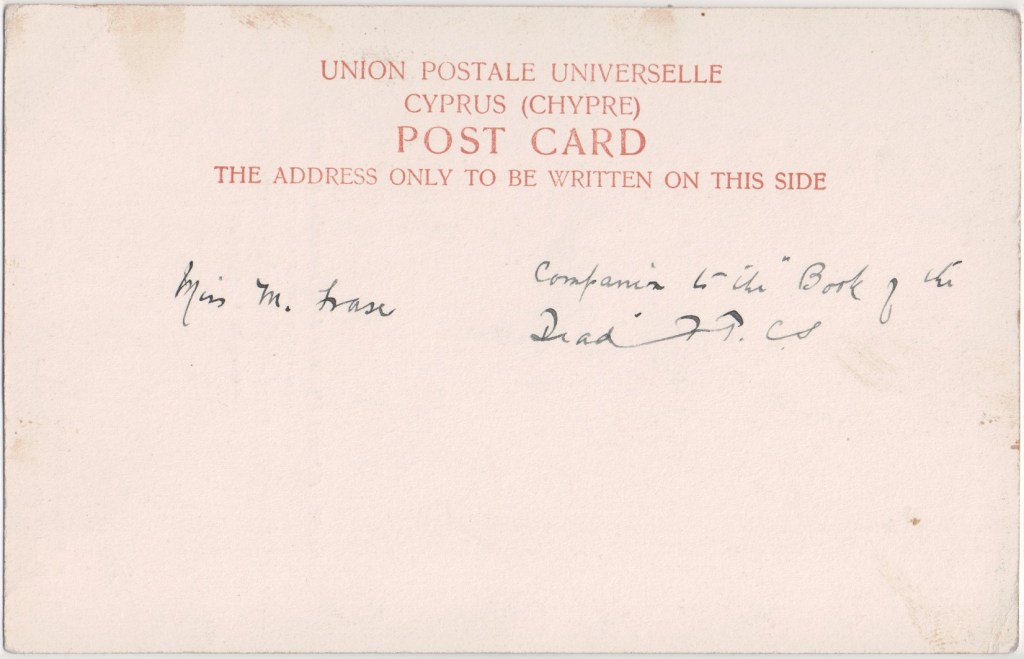 UNION POSTALE UNIVERSELLE
CYPRUS (CHYPRE)
POST CARD
THE ADDRESS ONLY TO BE WRITTEN ON THIS SIDE
Miss M. Frase
Companion to the "Book of the
Dead"